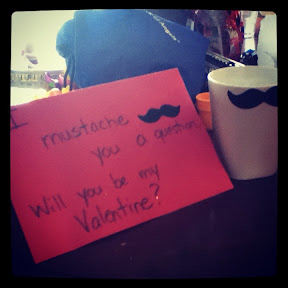 I
mustache
you a question,
Will you be my
Valentine?